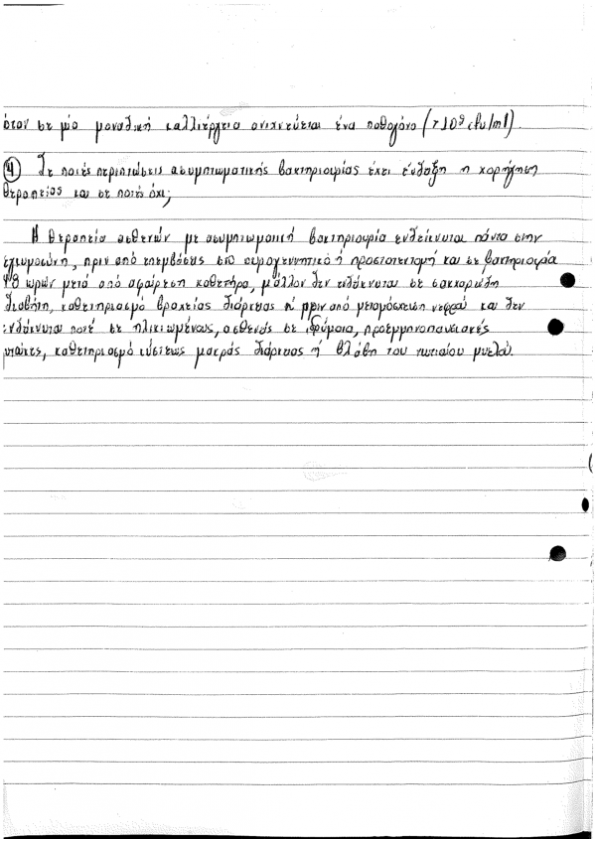 όταν σε μία μοναδική καλλιέργεια ανιχνεύεται ένα παθογόνο (>10⁵ cfu/ml).
④ Σε ποιές περιπτώσεις ασυμπτωματικής βακτηριουρίας έχει ένδειξη η χορήγηση
θεραπείας και σε ποιές όχι;
Η θεραπεία ασθενών με ασυμπτωματική βακτηριουρία ενδείκνυται πάντα στην
εγκυμοσύνη, πριν από επεμβάσεις στο ουρογεννητικό ή προστατεκτομή και σε βακτηριουρία
48 ωρών μετά από αφαίρεση καθετήρα, μάλλον δεν ενδείκνυται σε σακχαρώδη
διαβήτη, καθετηριασμό βραχείας διάρκειας ή πριν από μεταμόσχευση νεφρού και δεν
ενδείκνυται ποτέ σε ηλικιωμένους, ασθενείς σε ιδρύματα, προεμμηνοπαυσιακές
γυναίκες, καθετηριασμό κύστεως μακράς διάρκειας ή βλάβη του νωτιαίου μυελού.